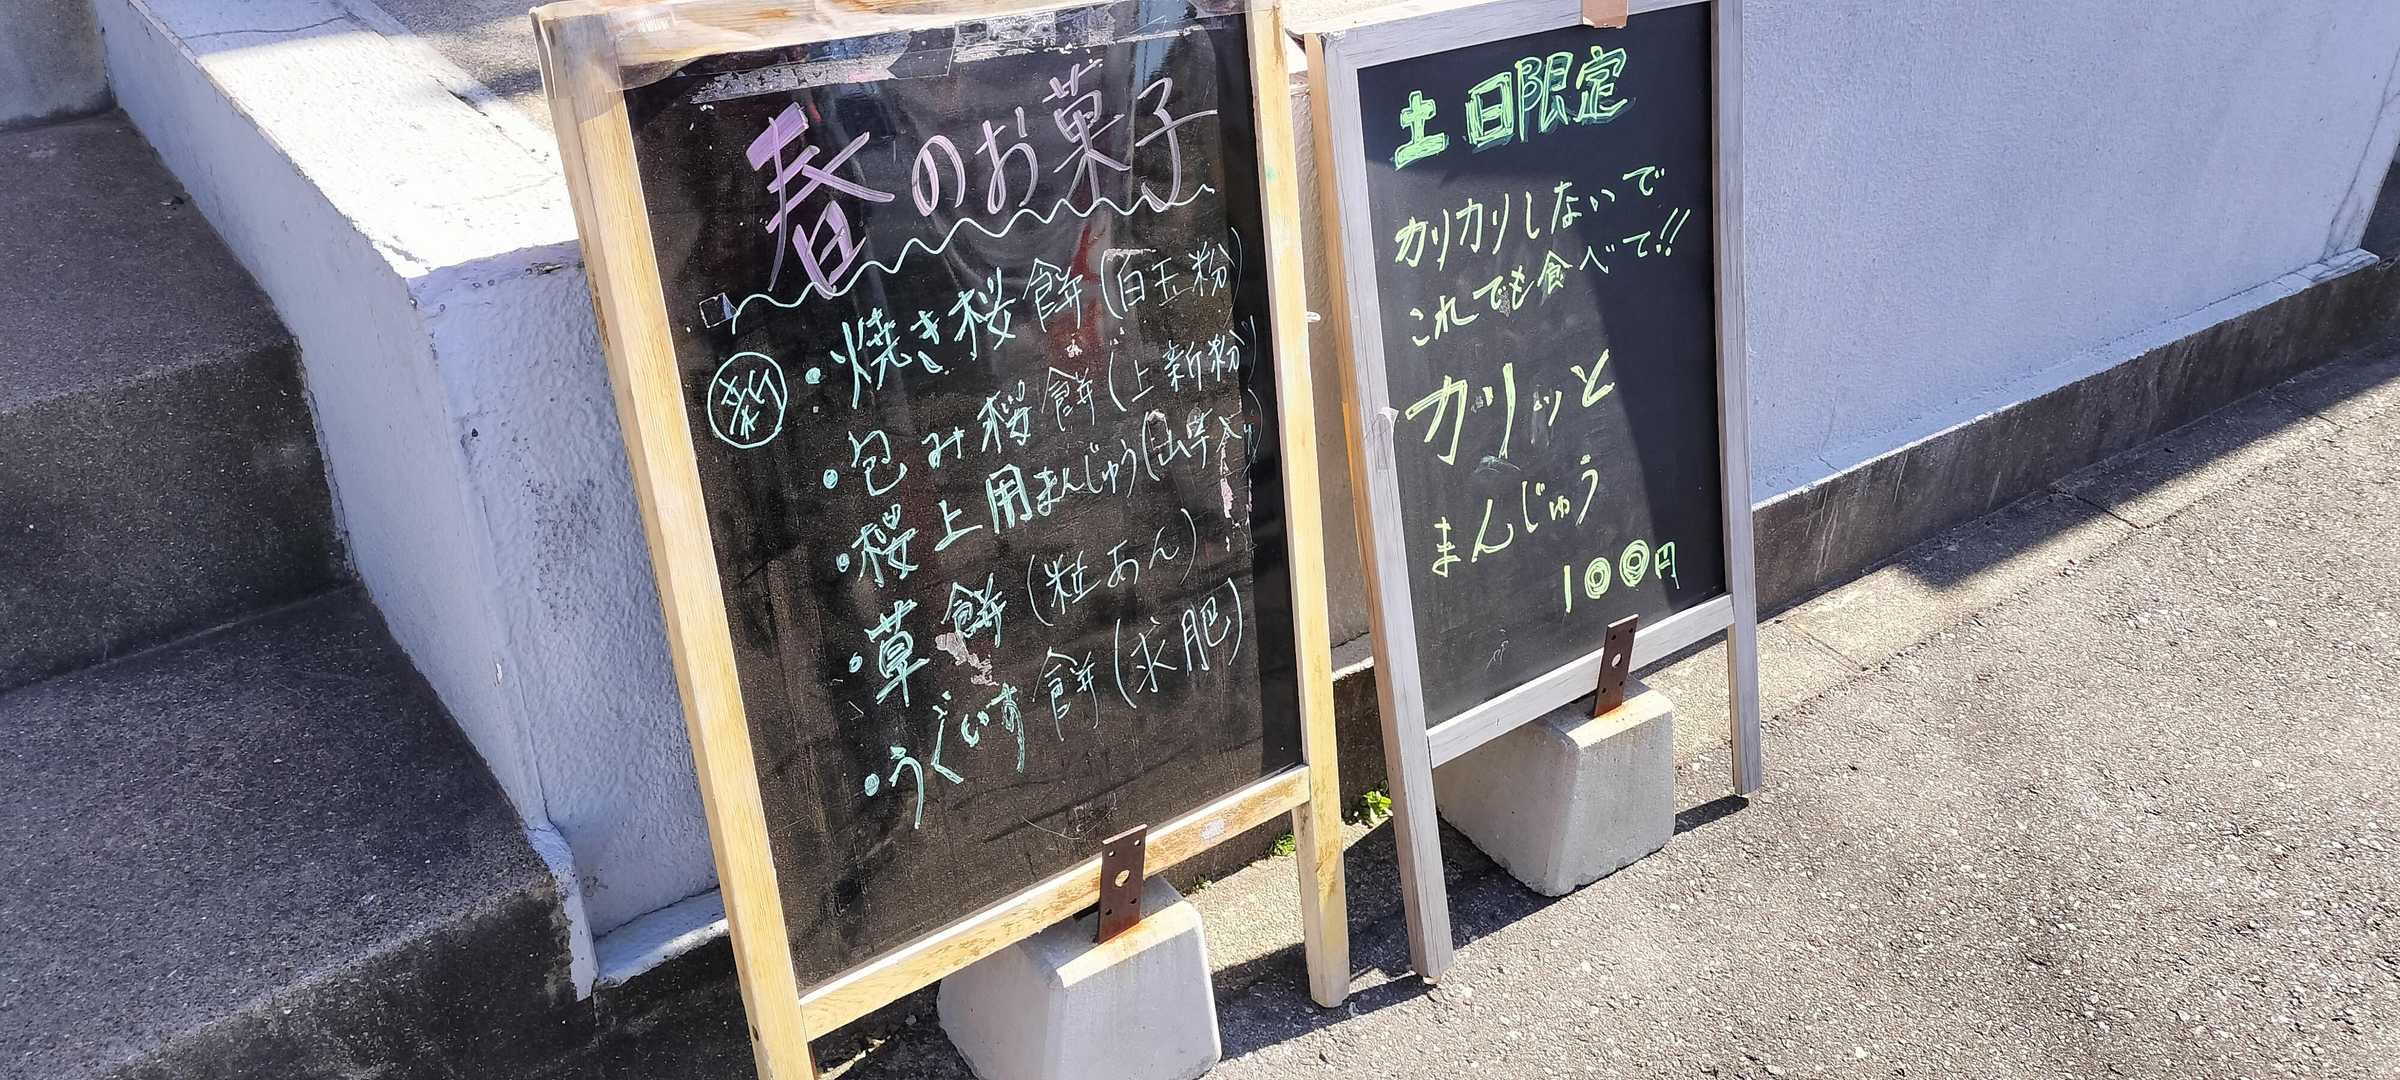 春のお菓子
新 ・焼き桜餅(白玉粉)
・包み桜餅(上新粉)
・桜上用まんじゅう(山芋入り)
・草餅(粒あん)
・うぐいす餅(求肥)
土日限定
カリカリしないで
これでも食べて!!
カリッと
まんじゅう
100円